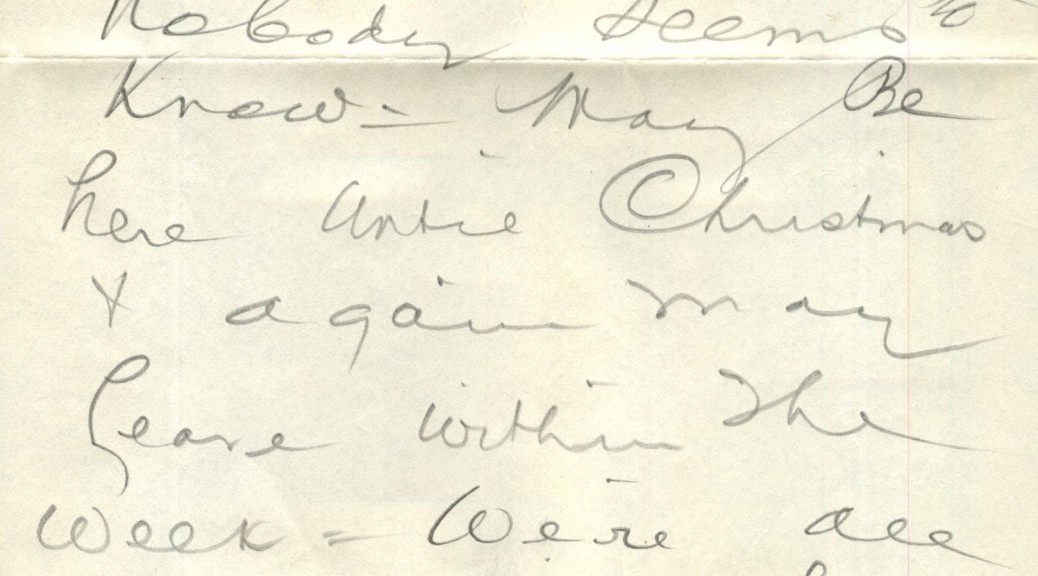 Nobody seems to
Know = May Be
here until Christmas
& again may
leave within the
week = We're all